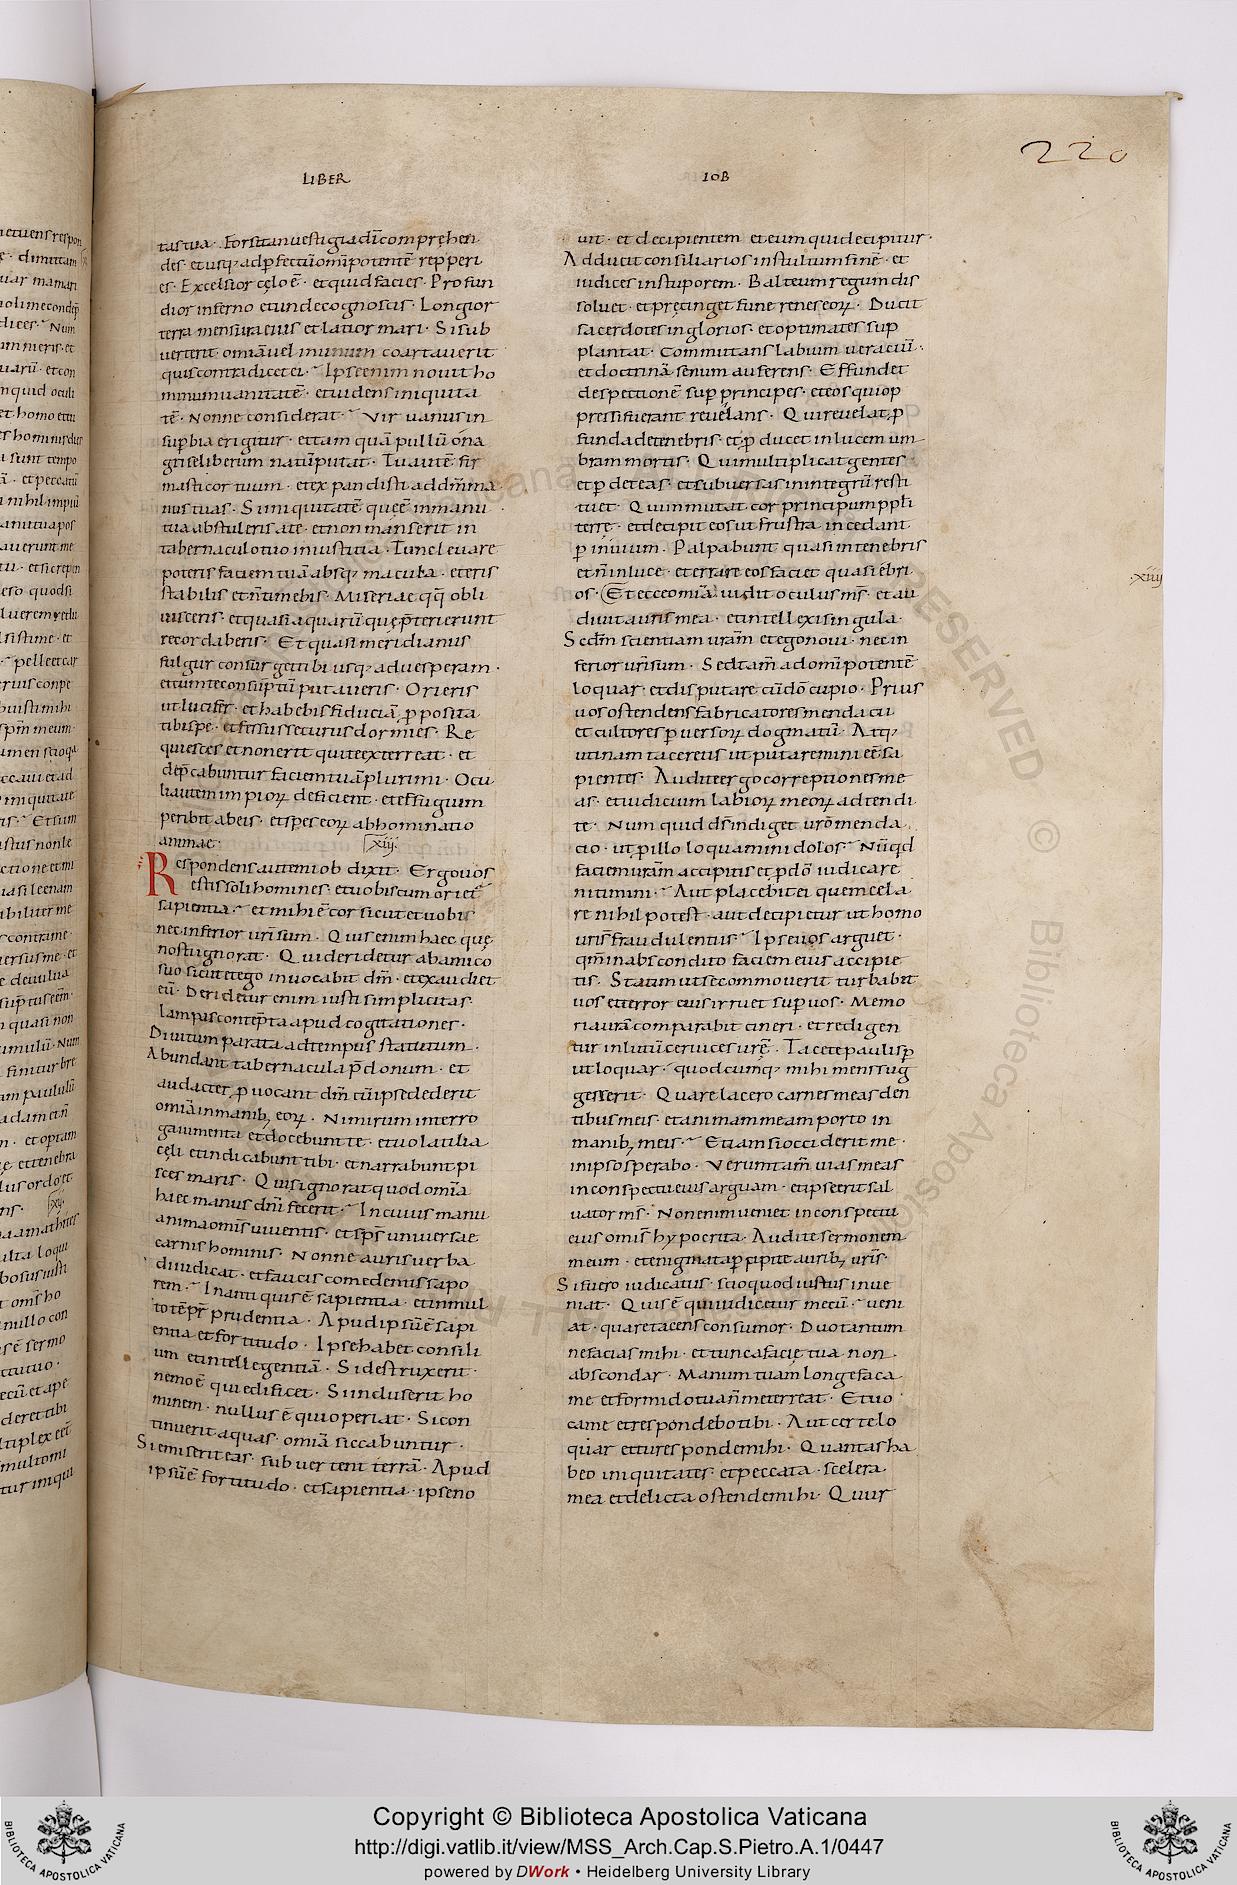 220
LIBER
IOB
tas tua · Forsitan vestigia dī comprehen
des · et usq; ad perfectū omīpotentē repperi
es · Excelsior cęlo ē · et quid facies · Profun
dior inferno et unde cognoscis · Longior
terra mensura eius et latior mari · Si sub
verterit omīa vel in unum coartaverit
quis contradicet ei · Ipse enim novit ho
minum vanitatē · et videns iniquita
tē · Nonne considerat · Vir vanus in
suꝑbia erigitur · et tam quā pullū ona
gri se liberum natū putat · Tu autē fir
masti cor tuum · et expandisti ad dm̄ ma
nus tuas · Si iniquitatē que ē in manu
tua abstuleris a te · et non manserit in
tabernaculo tuo iniustitia · Tunc levare
poteris faciem tuā absq; macula · et eris
stabilis et n̄ timebis · Miseriae qq̄ obli
visceris · et quasi aquarū quę p̄terierunt
recordaberis · Et quasi meridianus
fulgur consurget tibi usq; ad vesperam ·
et cum te consūptū putaveris · Orieris
ut lucifer · et habebis fiduciā ꝓposita
tibi spe · et fossus securus dormies · Re
quiesces et non erit qui te exterreat · et
dep̄cabuntur faciem tuā plurimi · Ocu
li autem impioꝝ deficient · et effugium
peribit ab eis · et spes eoꝝ abhominatio
animae · xiij ·
Respondens autem iob dixit · Ergo vos
estis soli homines · et vobiscum oriet
sapientia · et mihi ē cor sicut et vobis
nec inferior vr̄i sum · Quis enim haec quę
nostis ignorat · Qui deridetur ab amico
suo sicut et ego invocabit dm̄ · et exaudiet
eū · Deridetur enim iusti simplicitas ·
Lampis contēpta apud cogitationes ·
Divitum parata ad tempus statutum ·
Abundant tabernacula p̄donum · et
audacter ꝓvocant dm̄ cū ipse dederit
omīa in manib; eoꝝ · Nimirum interro
ga iumenta et docebunt te · et volatilia
cęli et indicabunt tibi · et narrabunt pi
sces maris · Quis ignorat quod omīa
haec manus dn̄i fecerit · In cuius manu
anima omīs viventis · et sps̄ universae
carnis hominis · Nonne auris verba
diiudicat · et fauces comedentis sapo
rem · In antiquis ē sapientia · et in mul
to tēpr̄ prudentia · Apud ipsū ē sapi
entia et fortitudo · Ipse habet consili
um et intellegentiā · Si destruxerit ·
nemo ē qui edificet · Si incluserit ho
minem · nullus ē qui operiat · Si con
tinuerit aquas · omīa siccabuntur ·
Si emiserit eas · subvertent terrā · Apud
ipsū ē fortitudo · et sapientia · ipse no
vit · et decipientem et eum qui decipitur ·
Adducit consiliarios in stultum finē · et
iudices in stuporem · Balteum regum dis
solvet · et pręcinget fune renes eoꝝ · Ducit
sacerdotes inglorios · et optimates sup
plantat · Commutans labium veraciū ·
et doctrinā senum auferens · Effundet
despectionē suꝑ principes · et eos qui op
pressi fuerant relevans · Qui revelat ꝓ
funda de tenebris · et ꝓducet in lucem um
bram mortis · Qui multiplicat gentes
et ꝑdet eas · et subversas in integrū resti
tuet · Qui inmutat cor principum ppli
terrę · et decipit eos ut frustra incedant
ꝑ invium · Palpabunt quasi in tenebris
et n̄ in luce · et errare eos faciet quasi ebri
os · Et ecce omīa vidit oculus ms̄ · et au
divit auris mea · et intellexi singula ·
· xiiij
Scdm̄ scientiam vr̄am et ego novi · nec in
ferior vr̄i sum · Sed tam̄ ad omīpotentē
loquar · et disputare cū dō cupio · Prius
vos ostendens fabricatores mendacii
et cultores ꝑversoꝝ dogmatū · Atq;
utinam taceretis ut putaremini eē sa
pientes · Audite ergo correptiones me
as · et iudicium labioꝝ meoꝝ adtendi
te · Numquid ds̄ indiget vr̄o menda
cio · ut ꝓ illo loquamini dolos · Nūqd
faciem vr̄am accipitis et ꝓ dō iudicare
nitimini · Aut placebit ei quem cela
re nihil potest · aut decipietur ut homo
vr̄is fraudulentiis · Ipse vos arguet ·
qm̄ in abscondito faciem eius accipie
tis · Statim ut se commoverit turbabit
vos et terror eius irruet suꝑ vos · Memo
ria vr̄a comparabit cineri · et redigen
tur in lutū cervices vr̄ę · Tacete paulisꝑ
ut loquar · quodcumq; mihi mens sug
gesserit · Quare lacero carnes meas den
tibus meis · et animam meam porto in
manib; meis · Etiam si occiderit me ·
in ipso sperabo · Verumtam̄ vias meas
in conspectu eius arguam · et ipse erit sal
vator ms̄ · Non enim veniet in conspectu
eius omīs hypocrita · Audite sermonem
meum · et enigmata ꝑcipite aurib; vr̄is ·
Si fuero iudicatus · scio quod iustus inve
niat · Quis ē qui iudicetur mecū · veni
at · quare tacens consumor · Duo tantum
ne facias mihi · et tunc a facie tua non
abscondar · Manum tuam longe fac a
me et formido tua n̄ me terreat · Et vo
ca me et respondebo tibi · Aut certe lo
quar et tu responde mihi · Quantas ha
beo iniquitates · et peccata · scelera
mea et delicta ostende mihi · Quur
Copyright © Biblioteca Apostolica Vaticana
http://digi.vatlib.it/view/MSS_Arch.Cap.S.Pietro.A.1/0447
powered by DWork • Heidelberg University Library
BIBLIOTECA APOSTOLICA VATICANA
BIBLIOTECA APOSTOLICA VATICANA